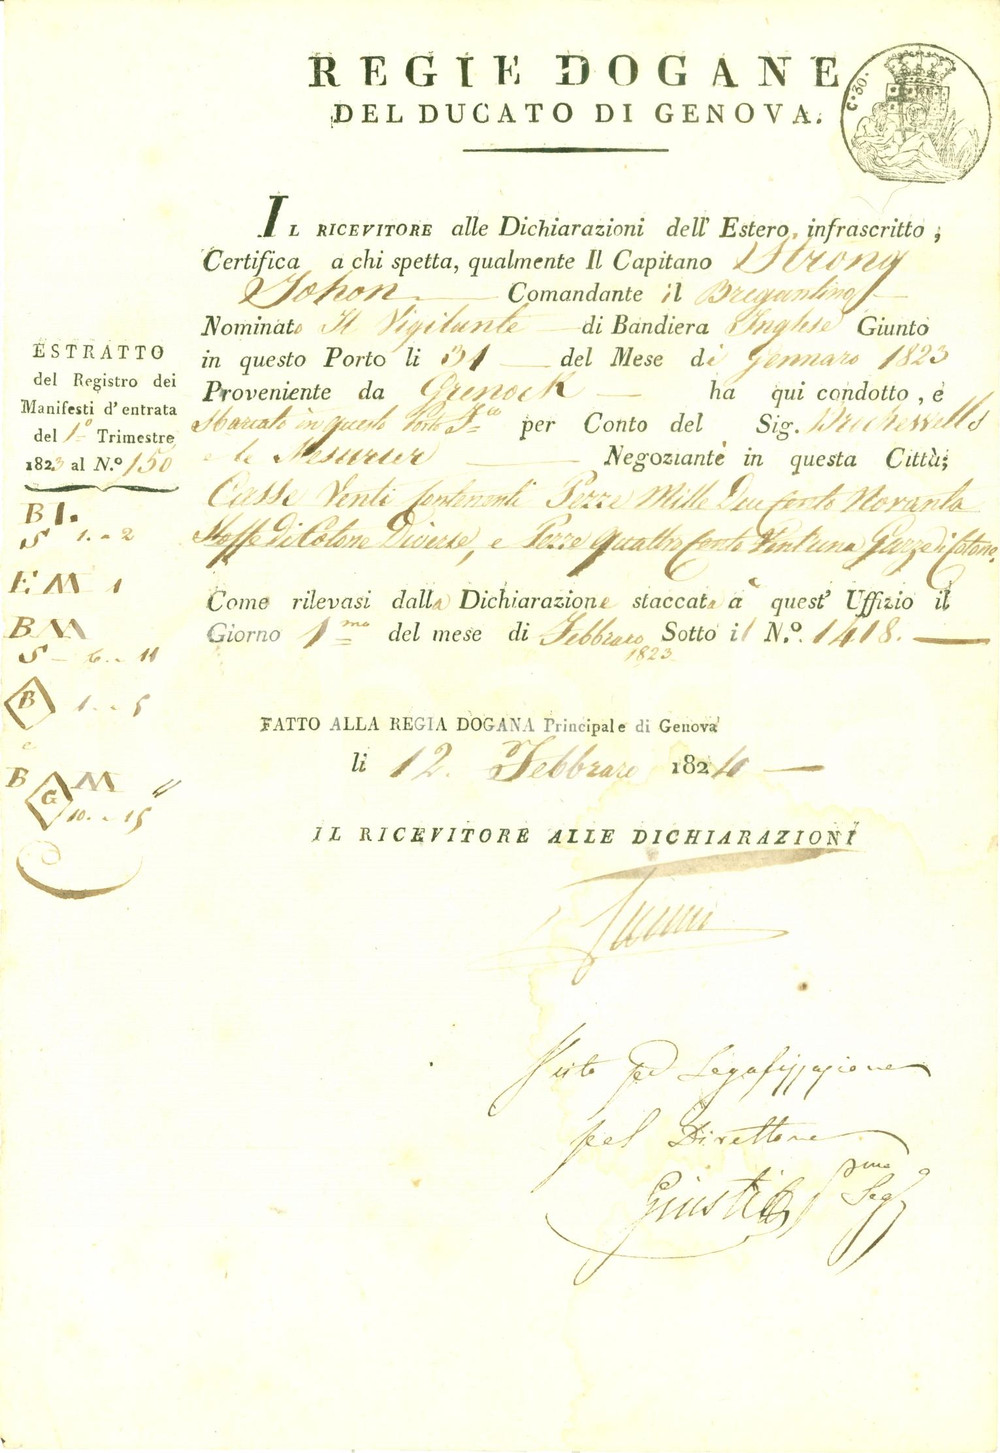 REGIE DOGANE
DEL DUCATO DI GENOVA.
C.º 30.
IL RICEVITORE alle Dichiarazioni dell' Estero, infrascritto,
Certifica a chi spetta, qualmente Il Capitano Strong
Johon Comandante il Bregantino
Nominato Il Vigilante di Bandiera Inglese Giunto
in questo Porto li 31 del Mese di Gennaro 1823
Proveniente da Grenock ha qui condotto, e
Scaricato in questo Porto F.co per Conto del Sig.
e le Mesurier Negoziante in questa Città;
Casse Venti Contenenti Pezze Mille Due Cento Novanta
Stoffe di Cotone Diverse, e Pezze Quattro Cento Vent'una Garze di Cotone.
Come rilevasi dalla Dichiarazione staccata a quest' Uffizio il
Giorno 1.mo del mese di Febbraro Sotto il N.º 1418.
1823
ESTRATTO
del Registro dei
Manifesti d'entrata
del 1.º Trimestre
1823 al N.º 150
B I.
S 1. a 2
E M 1
B M
S 6. a 11
B 1. a 5
e
B G M
10. a 15
FATTO ALLA REGIA DOGANA Principale di Genova
li 12. Febbraro 1824
IL RICEVITORE ALLE DICHIARAZIONI
Visto per Legalizzazione
pel Direttore
Giusti P.mo Seg.º